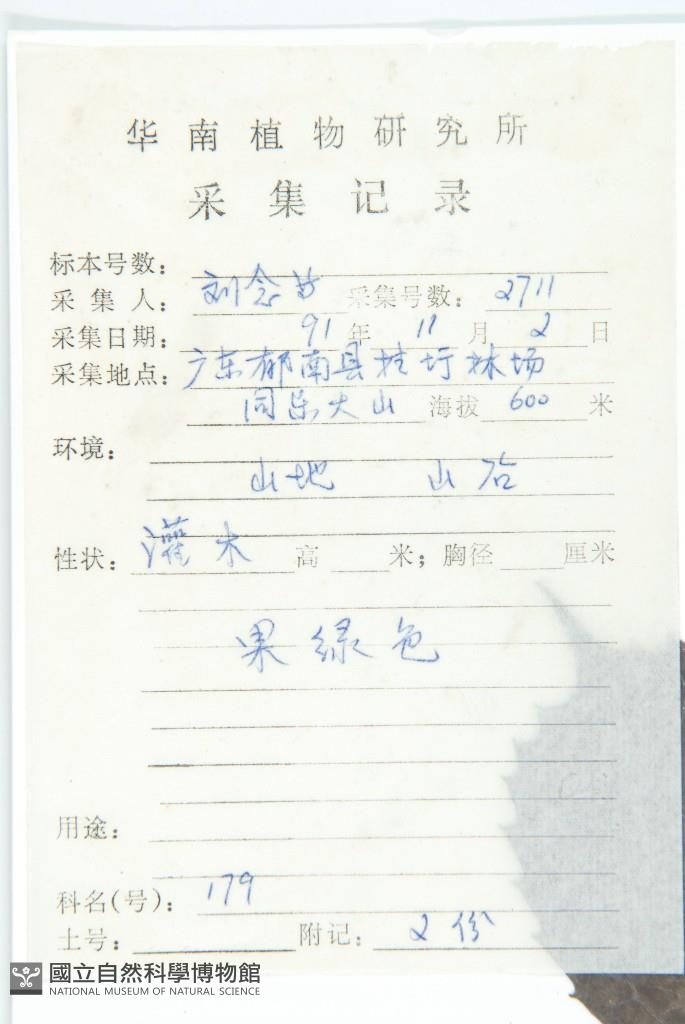 华南植物研究所
采集记录
标本号数：
采集人：刘念 采集号数：2711
采集日期：91年11月2日
采集地点：广东郁南县桂圩林场
同乐大山 海拔600米
环境：
山地 山谷
性状：灌木 高 米；胸径 厘米
果绿色
用途：
科名(号)：179
土号： 附记：2份
國立自然科學博物館
NATIONAL MUSEUM OF NATURAL SCIENCE